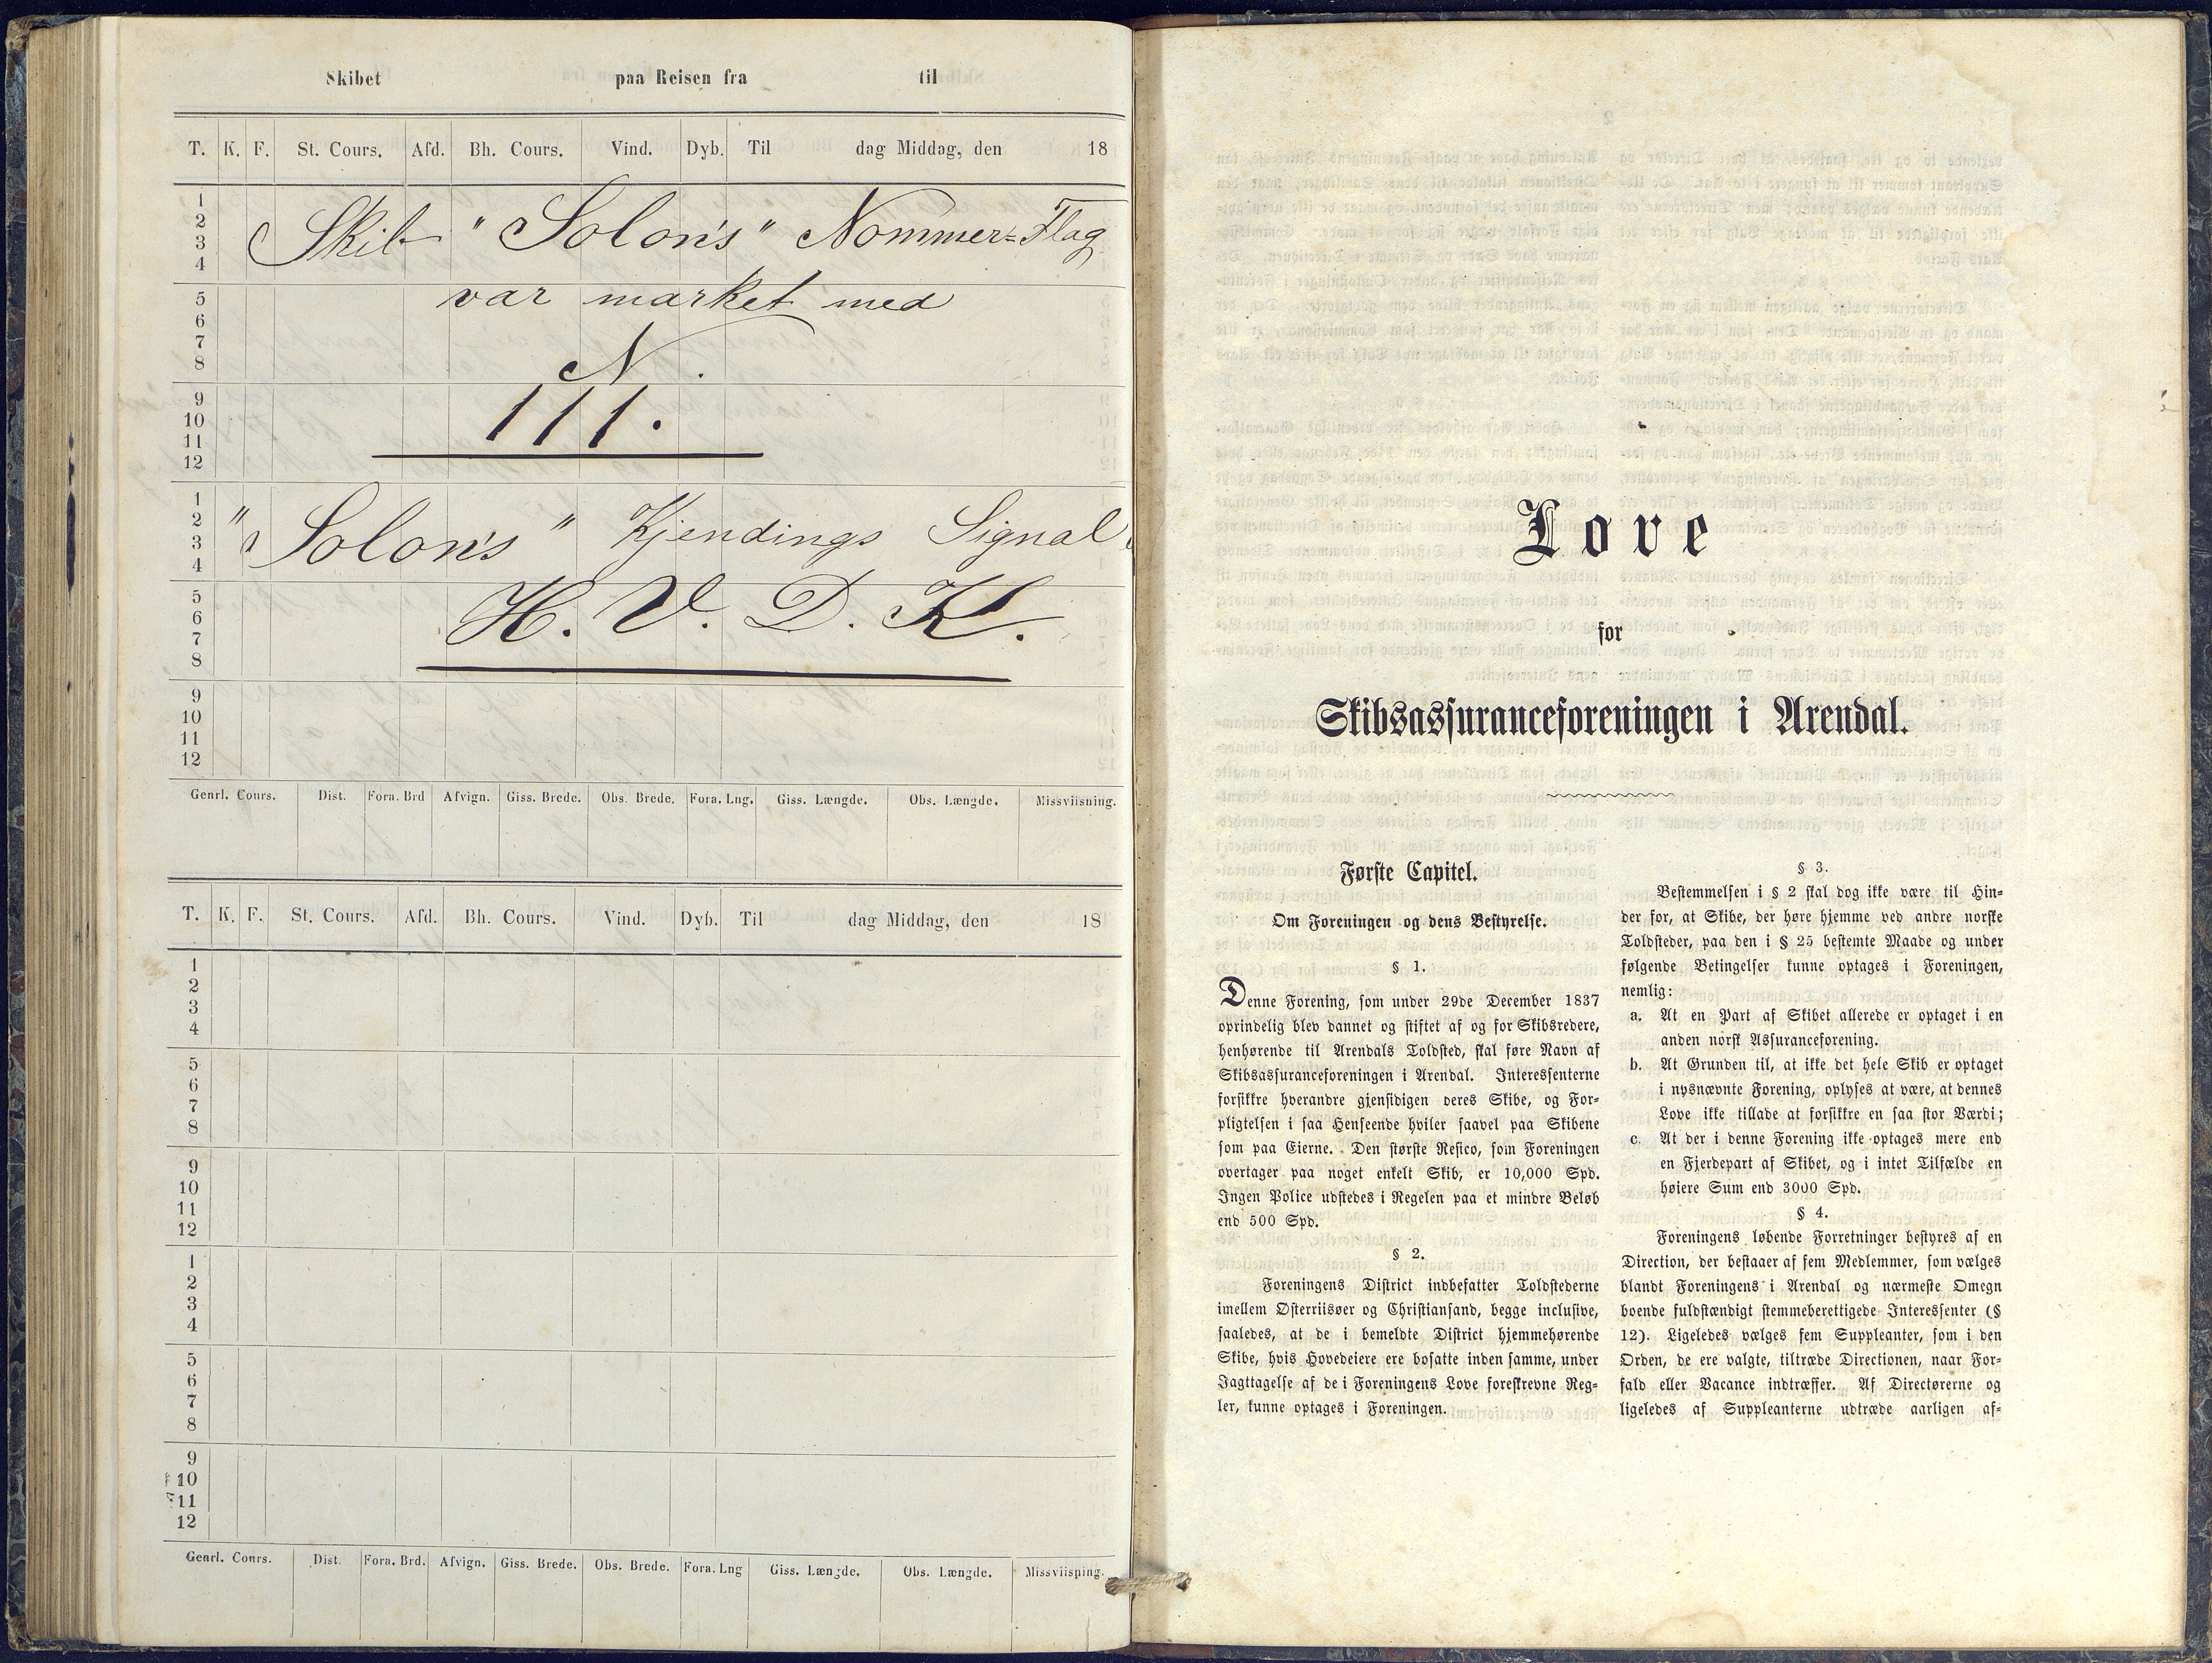 Skibet paa Reisen fra til
T. K. F. St. Cours. Afd. Bh. Cours. Vind. Dyb. Til dag Middag, den 18
1
2
3
4
Skib "Solon's" Nommer=Flag
var market med
5
6
7
8
N.
111.
9
10
11
12
1
2
3
4
"Solon's" Kjendings Signal
5
6
7
8
H. V. D. K.
9
10
11
12
Genrl. Cours. Dist. Fora. Brd Afvign. Giss. Brede. Obs. Brede. Fora. Lng. Giss. Længde. Obs. Længde. Missviisning.
T. K. F. St. Cours. Afd. Bh. Cours. Vind. Dyb. Til dag Middag, den 18
1
2
3
4
5
6
7
8
9
10
11
12
1
2
3
4
5
6
7
8
9
10
11
12
Genrl. Cours. Dist. Fora. Brd. Afvign. Giss. Brede. Obs. Brede. Fora. Lng Giss. Længde. Obs. Længde. Missviisning.
Love
for
Skibsassuranceforeningen i Arendal.
Første Capitel.
Om Foreningen og dens Bestyrelse.
§ 1.
Denne Forening, som under 29de December 1837
oprindelig blev dannet og stiftet af og for Skibsredere,
henhørende til Arendals Toldsted, skal føre Navn af
Skibsassuranceforeningen i Arendal. Interessenterne
forsikkre hverandre gjensidigen deres Skibe, og For=
pligtelsen i saa Henseende hviler saavel paa Skibene
som paa Eierne. Den største Resico, som Foreningen
overtager paa noget enkelt Skib, er 10,000 Spd.
Ingen Police udstedes i Regelen paa et mindre Beløb
end 500 Spd.
§ 2.
Foreningens District indbefatter Toldstederne
imellem Østerriisøer og Christiansand, begge inclusive,
saaledes, at de i bemeldte District hjemmehørende
Skibe, hvis Hovedeiere ere bosatte inden samme, under
Iagttagelse af de i Foreningens Love foreskrevne Reg=
ler, kunne optages i Foreningen.
§ 3.
Bestemmelsen i § 2 skal dog ikke være til Hin=
der for, at Skibe, der høre hjemme ved andre norske
Toldsteder, paa den i § 25 bestemte Maade og under
følgende Betingelser kunne optages i Foreningen,
nemlig:
a. At en Part af Skibet allerede er optaget i en
anden norsk Assuranceforening.
b. At Grunden til, at ikke det hele Skib er optaget
i nysnævnte Forening, oplyses at være, at dennes
Love ikke tillade at forsikkre en saa stor Værdi;
c. At der i denne Forening ikke optages mere end
en Fjerdepart af Skibet, og i intet Tilfælde en
høiere Sum end 3000 Spd.
§ 4.
Foreningens løbende Forretninger bestyres af en
Direction, der bestaaer af fem Medlemmer, som vælges
blandt Foreningens i Arendal og nærmeste Omegn
boende fuldstændigt stemmeberettigede Interessenter (§
12). Ligeledes vælges fem Suppleanter, som i den
Orden, de ere valgte, tiltræde Directionen, naar For=
fald eller Vacance indtræffer. Af Directørerne og
ligeledes af Suppleanterne udtræde aarligen af=